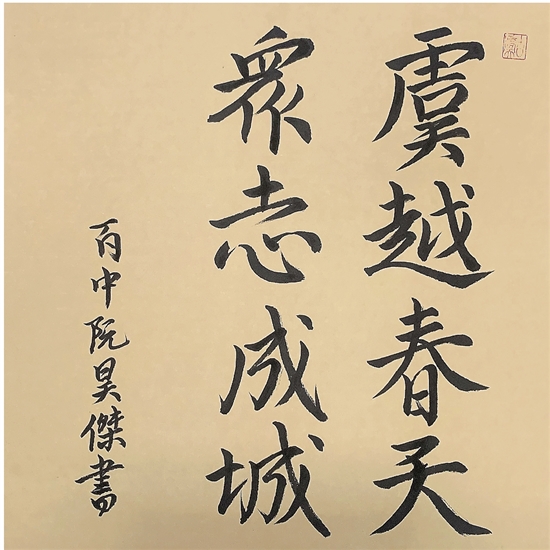 虞越春天
衆志成城
百中阮昊傑書